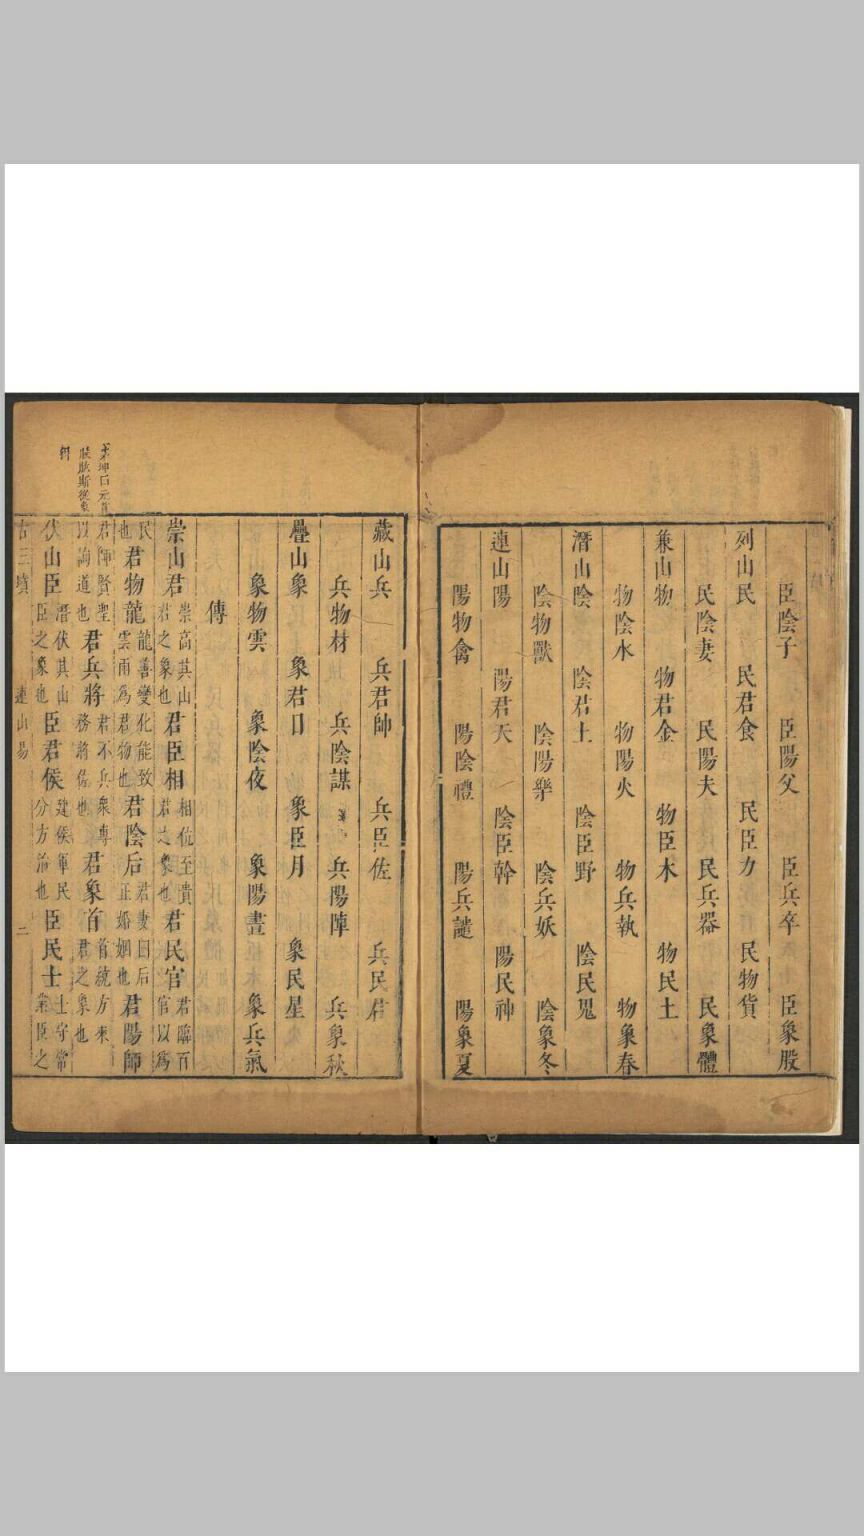 臣陰子 臣陽父 臣兵卒 臣象股
列山民 民君食 民臣力 民物貨
民陰妻 民陽夫 民兵器 民象體
兼山物 物君金 物臣木 物民土
物陰水 物陽火 物兵執 物象春
潛山陰 陰君土 陰臣野 陰民鬼
陰物獸 陰陽樂 陰兵妖 陰象冬
連山陽 陽君天 陽臣幹 陽民神
陽物禽 陽陰禮 陽兵譴 陽象夏
藏山兵 兵君帥 兵臣佐 兵民君
兵物材 兵陰謀 兵陽陣 兵象秋
疊山象 象君日 象臣月 象民星
象物雲 象陰夜 象陽晝 象兵氣
傳
崇山君 崇高其山君之象也 君臣相 相位至貴君之象也 君民官 君臨百官以爲
民也 君物龍 龍善變化能致雲雨爲君物也 君陰后 君妻曰后正婚姻也 君陽師
君師賢聖以詢道也 君兵將 君不兵衆專務將佐也 君象首 首統方來君之象也
伏山臣 潛伏其山臣之象也 臣君侯 建侯軍民分方治也 臣民士 士守常業臣之
古三墳 連山易 二